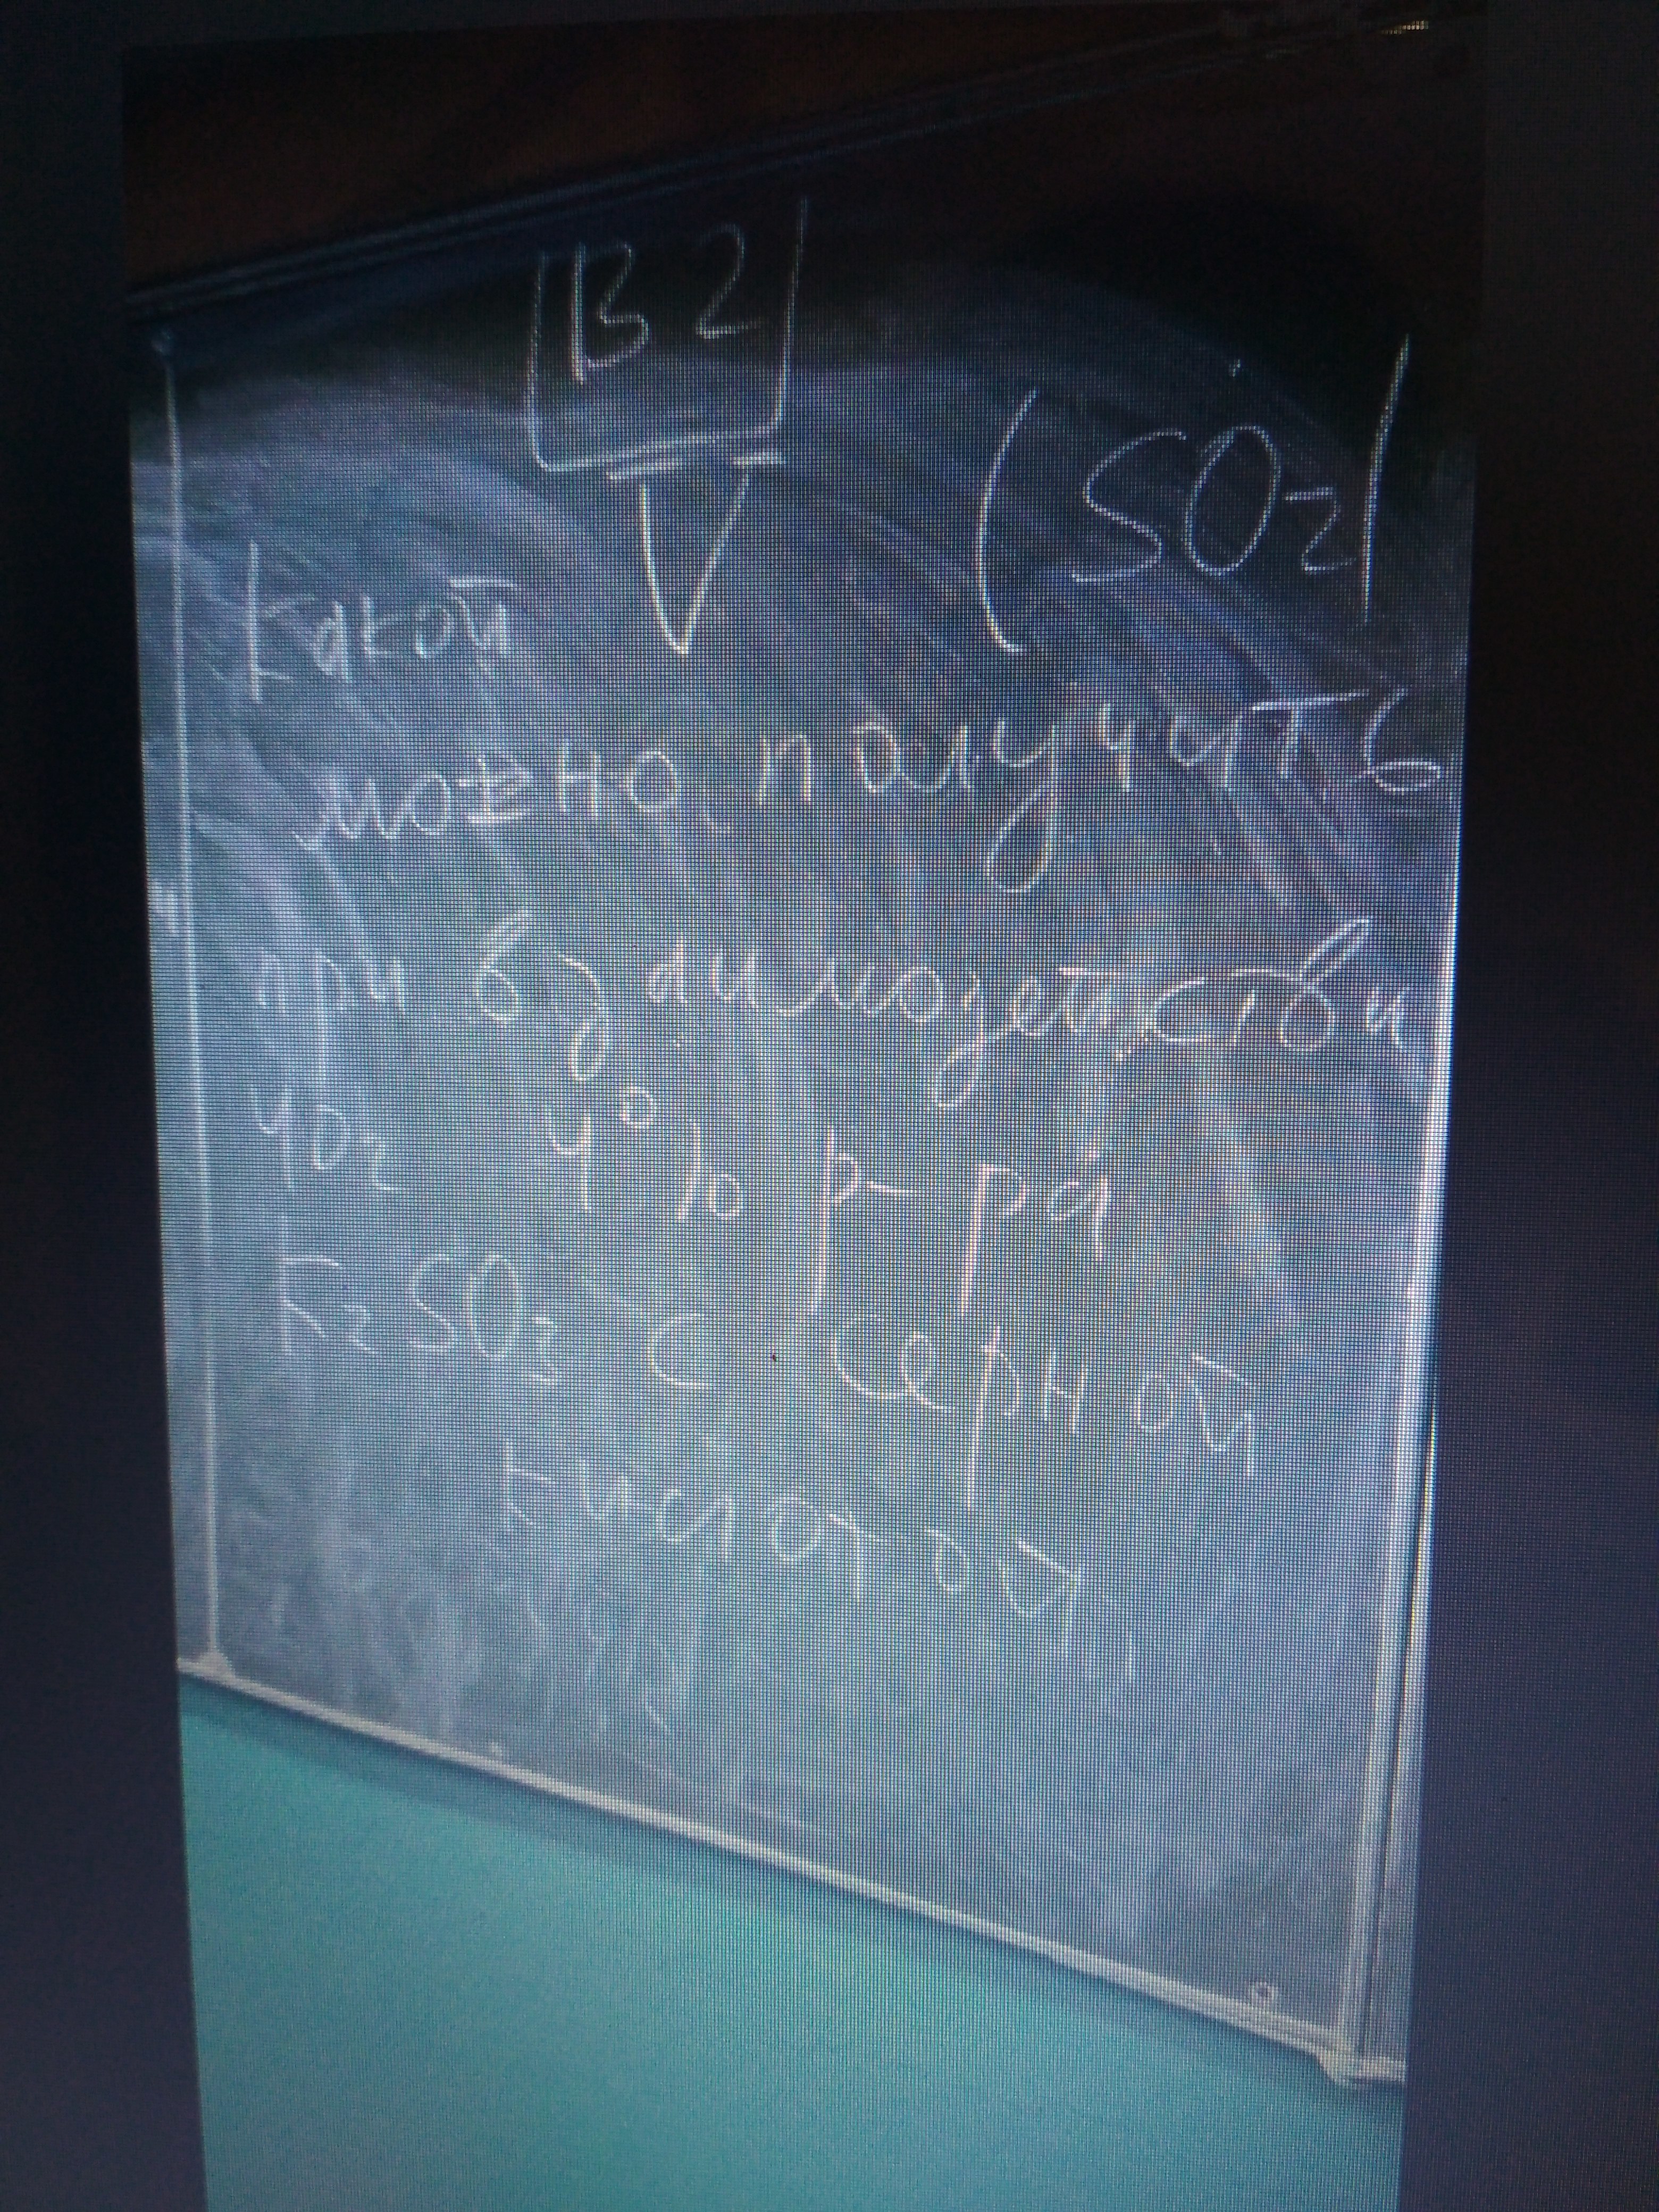 В 2
Какой V (SO2)
можно получить
при взаимодействи
40г 4% р-ра
K2SO3 с серной
кислотой